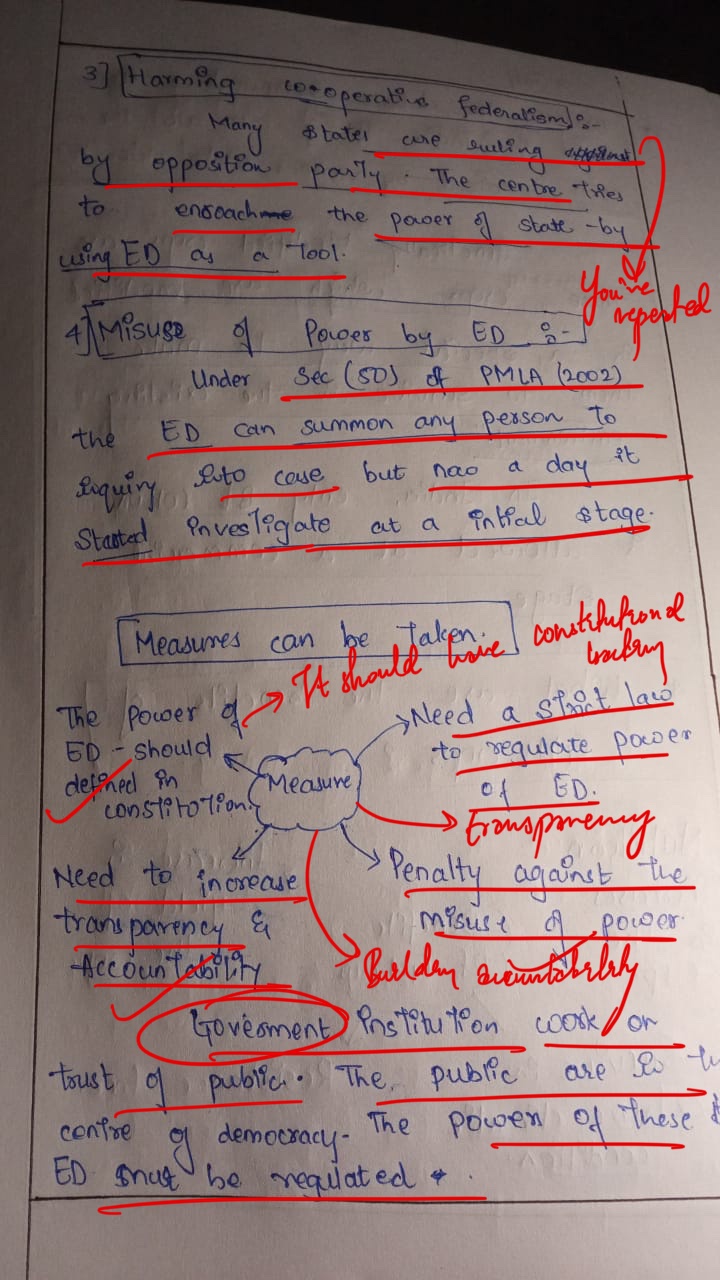 3] Harming co-operative federalism :-
Many states are ruling
by opposition party. The centre tries
to encroach the power of state -by
using ED as a Tool.
You've
repeated
4] Misuse of Power by ED :-
Under Sec (50) of PMLA (2002)
the ED can summon any person to
inquiry into case but nao a day it
Started investigate at a intial stage.
Measures can be Taken.
It should have constitutional
backing
The power of
ED - should
defined in
constitution.
Need a strict law
to regulate power
of ED.
Measure
Transparency
Need to increase
transparency &
Accountability
Penalty against the
misuse of power.
Building accountability
Goverment institution work on
trust of public. The public are in
centre of democracy- The power of These
ED must be regulated.